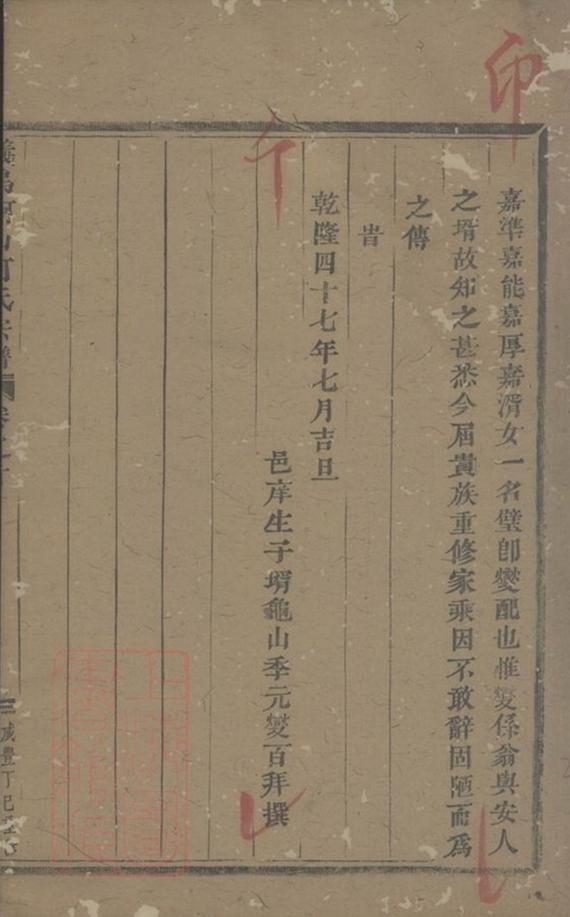 嘉準嘉能嘉厚嘉渭女一名璧卽燮配也惟燮係翁與安人
之壻故知之甚悉今屆貴族重修家乘因不敢辭固陋而爲
之傳
旹
乾隆四十七年七月吉旦
邑庠生子壻龜山季元燮百拜撰
氏宗譜
咸豐丁巳